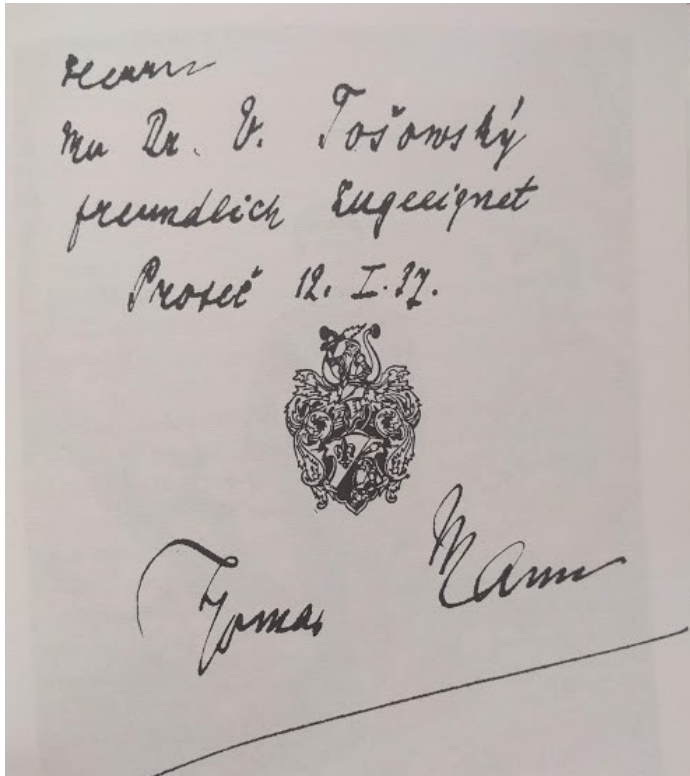 Herrn
Mu Dr. V. Tošowský
freundlich zugeeignet
Proseč 12. I. 37.
Thomas Mann